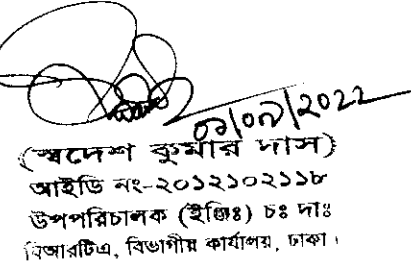 ০১/০৯/2022
(স্বদেশ কুমার দাস)
আইডি নং-২০১২১০২১১৮
উপপরিচালক (ইঞ্জিঃ) চঃ দাঃ
বিআরটিএ, বিভাগীয় কার্যালয়, ঢাকা।